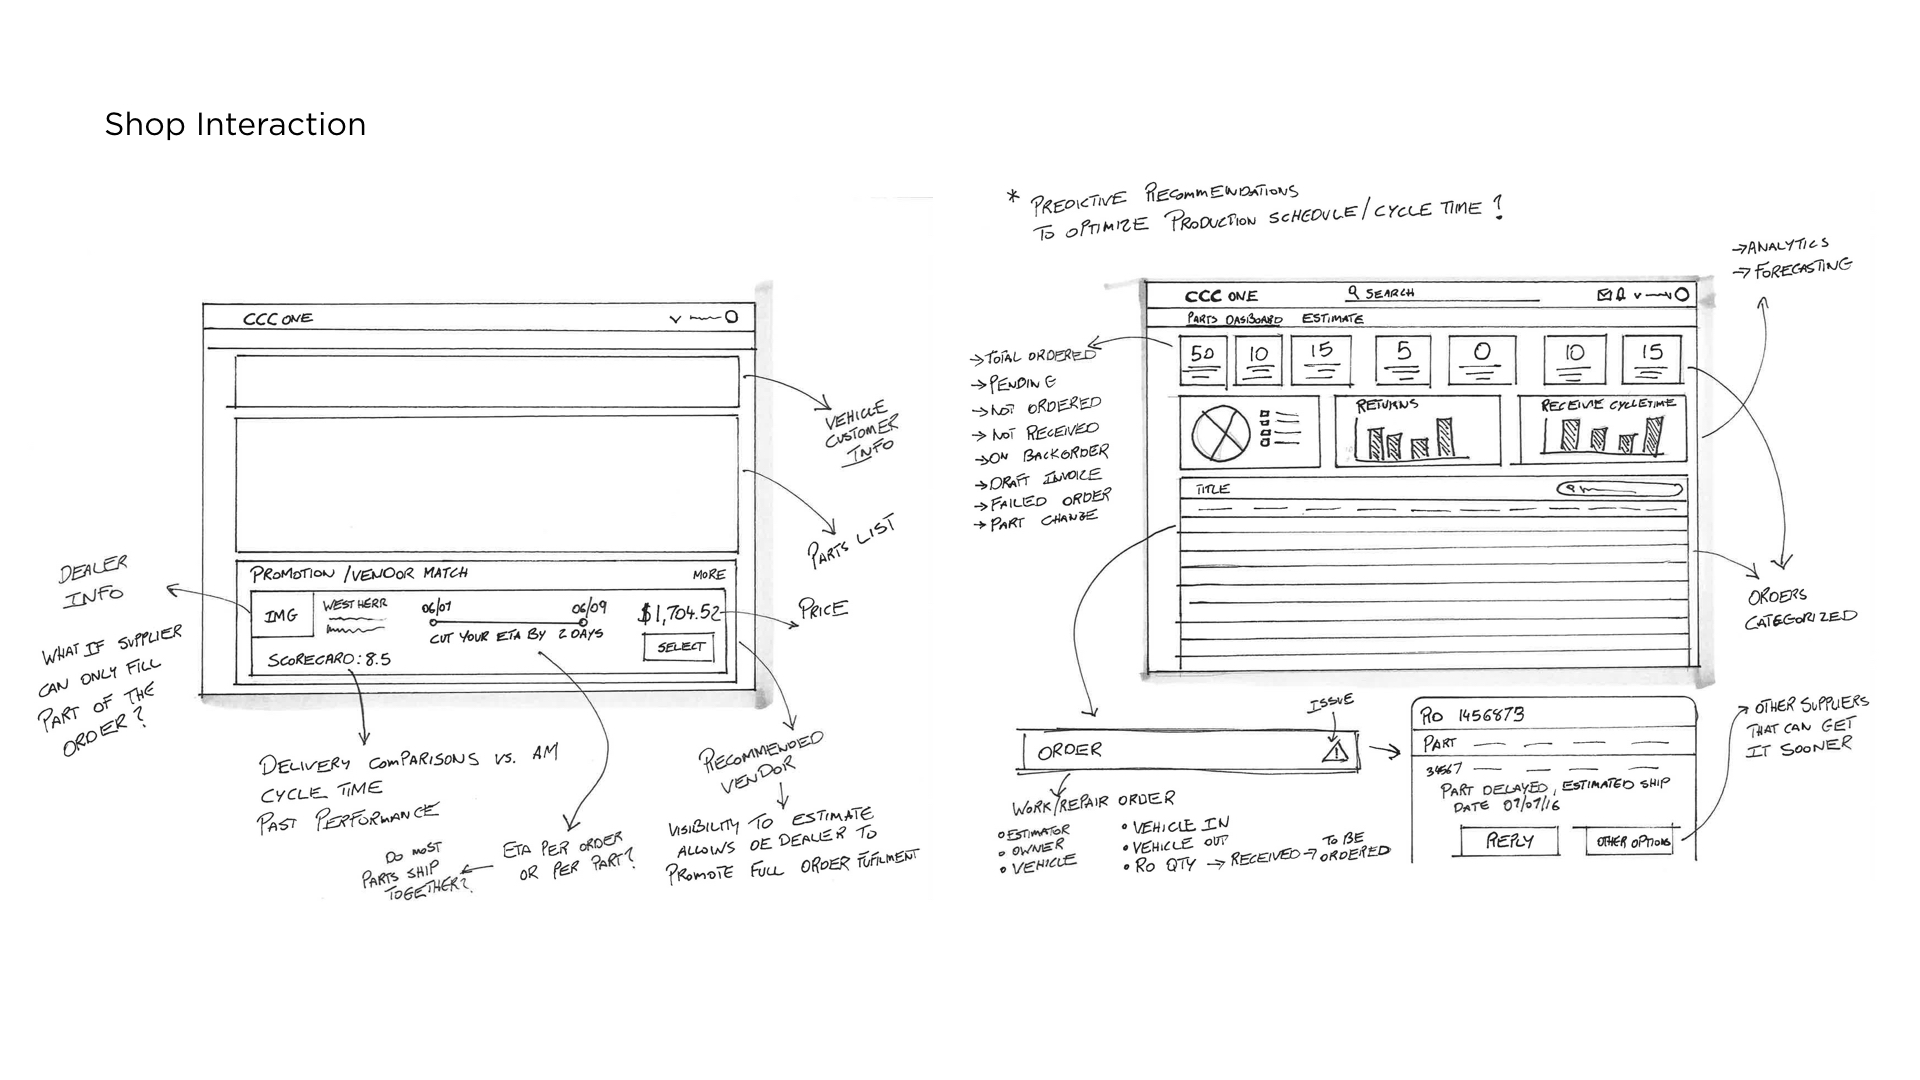 Shop Interaction
CCC ONE
VEHICLE
CUSTOMER
INFO
PARTS LIST
PROMOTION / VENDOR MATCH
MORE
IMG
WEST HERR
06/07
06/09
CUT YOUR ETA BY 2 DAYS
$1,704.52
SELECT
SCORECARD: 8.5
PRICE
DEALER
INFO
WHAT IF SUPPLIER
CAN ONLY FILL
PART OF THE
ORDER?
DELIVERY COMPARISONS VS. AM
CYCLE TIME
PAST PERFORMANCE
ETA PER ORDER
OR PER PART?
DO MOST
PARTS SHIP
TOGETHER?
RECOMMENDED
VENDOR
VISIBILITY TO ESTIMATE
ALLOWS OE DEALER TO
PROMOTE FULL ORDER FUFILMENT
* PREDICTIVE RECOMMENDATIONS
TO OPTIMIZE PRODUCTION SCHEDULE/CYCLE TIME?
→ ANALYTICS
→ FORECASTING
CCC ONE
SEARCH
PARTS DASHBOARD
ESTIMATE
50
10
15
5
0
10
15
→ TOTAL ORDERED
→ PENDING
→ NOT ORDERED
→ NOT RECEIVED
→ ON BACKORDER
→ DRAFT INVOICE
→ FAILED ORDER
→ PART CHANGE
RETURNS
RECEIVE CYCLETIME
TITLE
ORDERS
CATEGORIZED
ISSUE
ORDER
WORK/REPAIR ORDER
• ESTIMATOR
• OWNER
• VEHICLE
• VEHICLE IN
• VEHICLE OUT
• RO QTY → RECEIVED → TO BE ORDERED
RO 1456873
PART
34567
PART DELAYED, ESTIMATED SHIP
DATE 07/07/16
REPLY
OTHER OPTIONS
→ OTHER SUPPLIERS
THAT CAN GET
IT SOONER